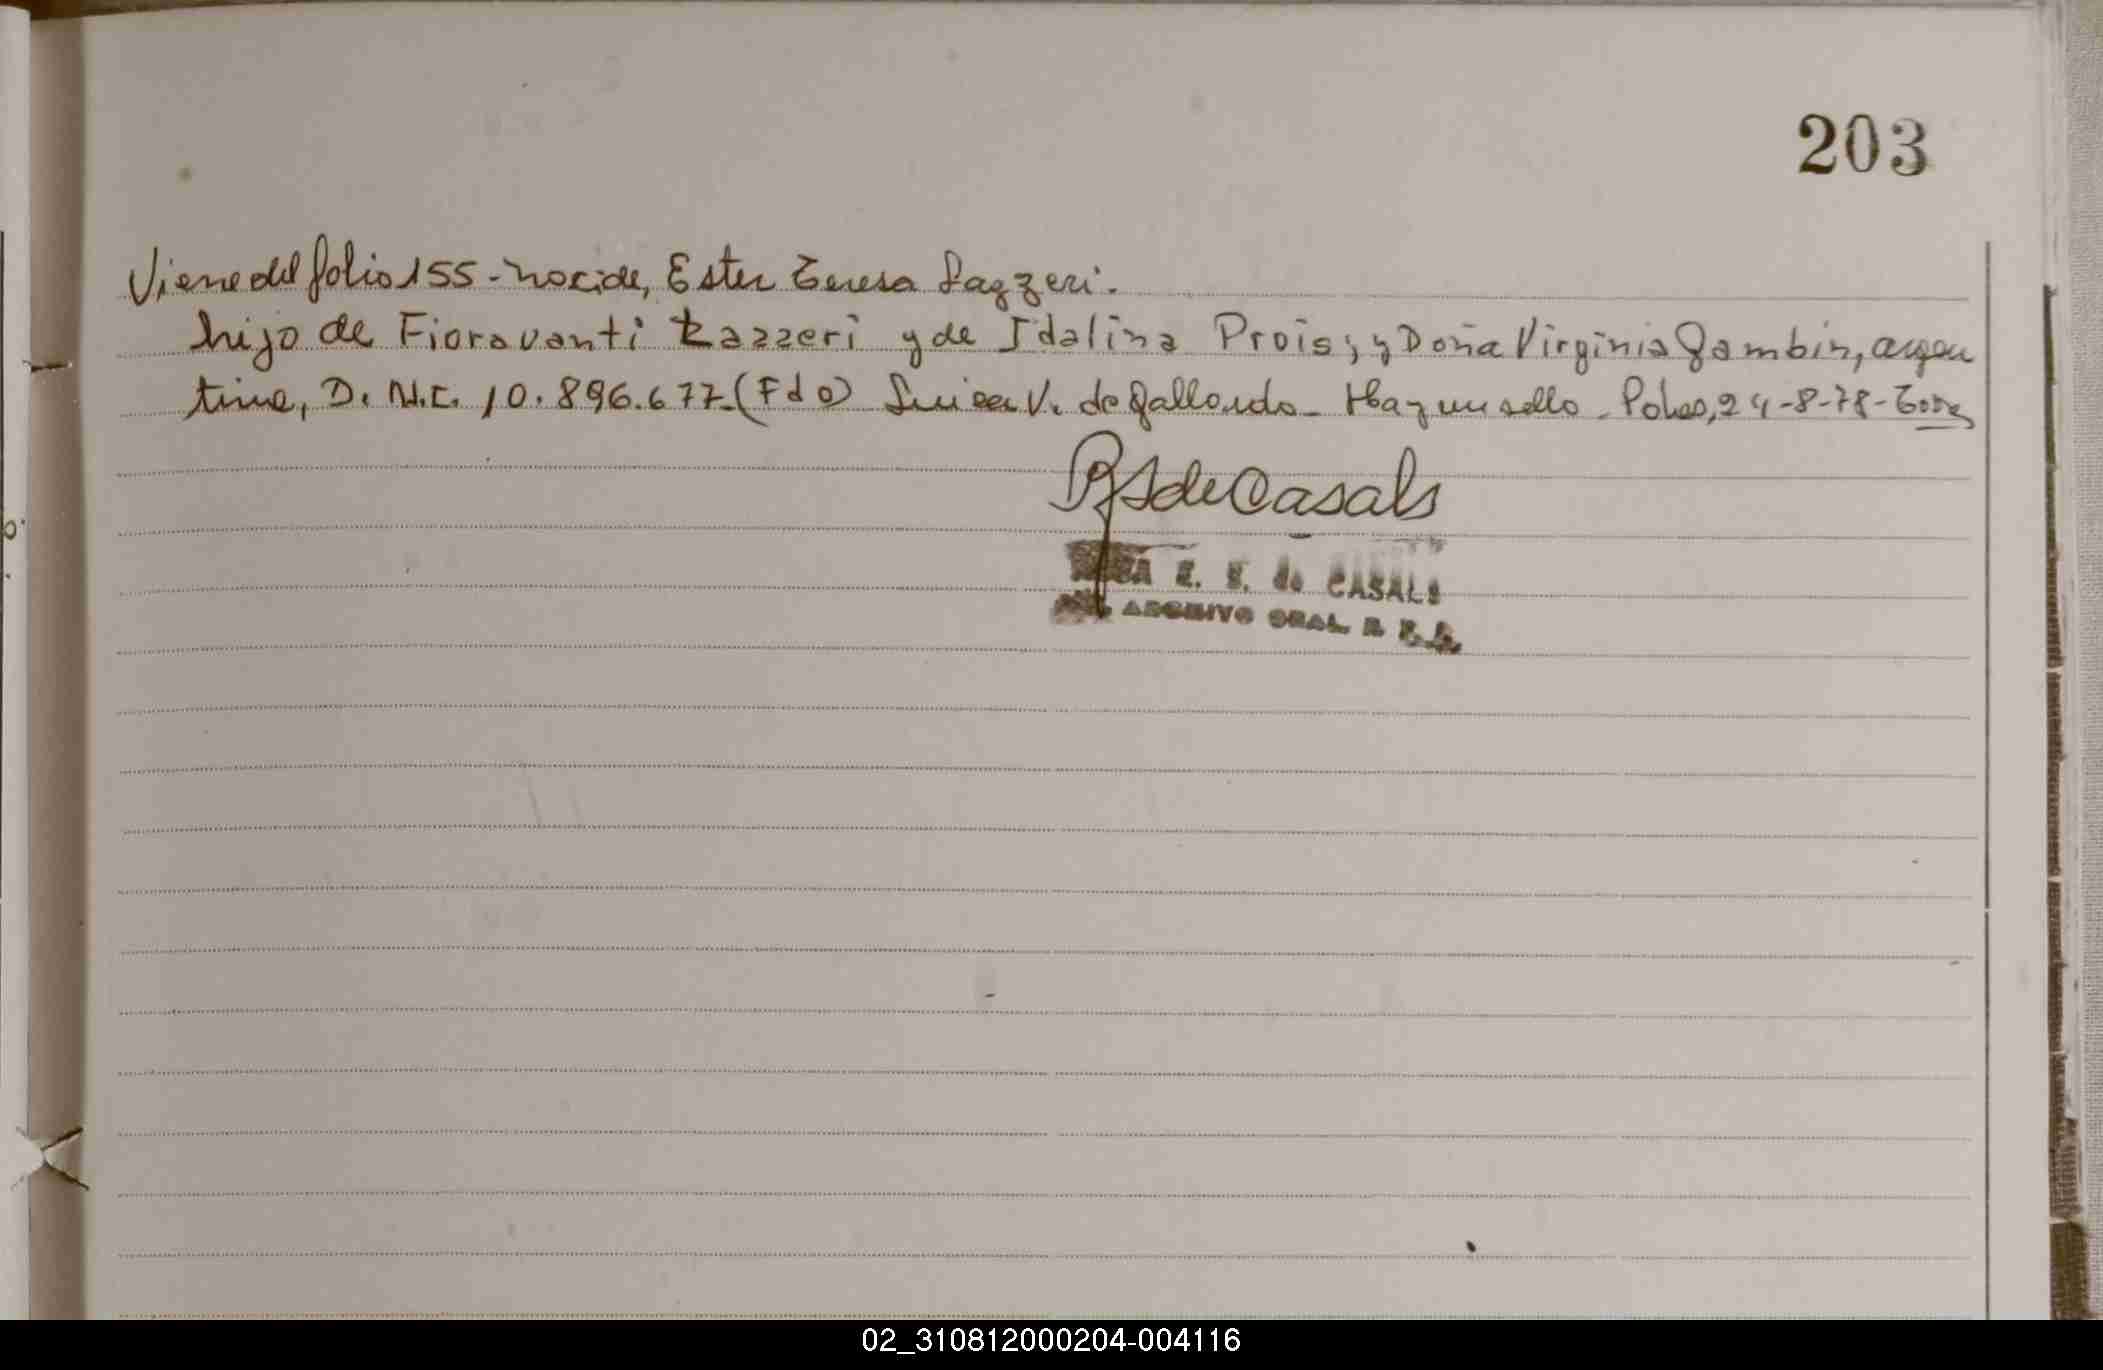 203
Viene del folio 155 - nacide, Ester Teresa Lazzeri.
hijo de Fioravanti Lazzeri y de Idalina Prois; y Doña Virginia Gambin, argen
tina, D. N.I. 10.896.677-(Fdo) V. de Gallardo - Hay un sello - 24-8-78-
de Casals
E. S. de CASALS
ARCHIVO GRAL. R. E. C.
02_310812000204-004116